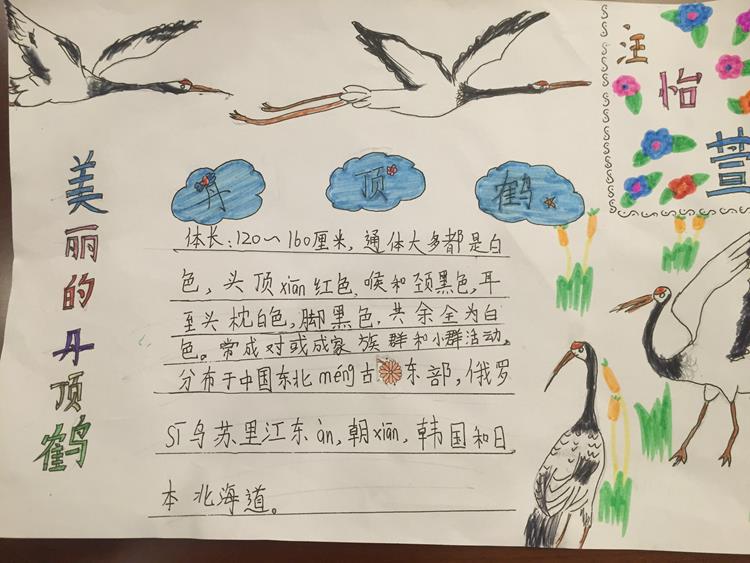 美丽的丹顶鹤
丹顶鹤
体长:120～160厘米,通体大多都是白
色,头顶xiān红色,喉和颈黑色,耳
至头枕白色,脚黑色,共余全为白
色。常成对或成家族群和小群活动。
分布于中国东北méng古东部,俄罗
sī乌苏里江东àn,朝xiān,韩国和日
本北海道。
汪怡萱